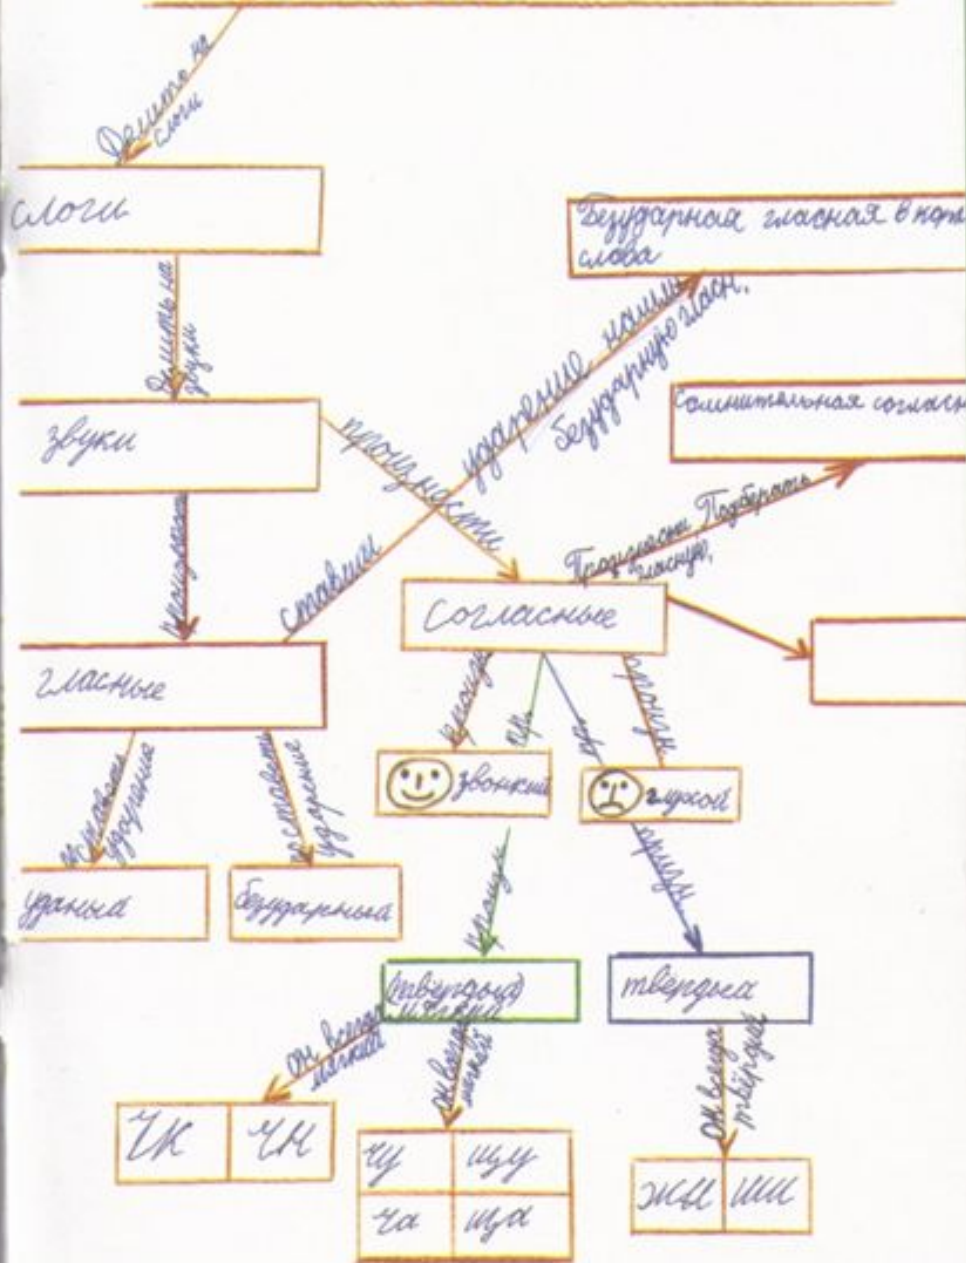 Делить на
слоги
слоги
Безударная гласная в кор
слова
Делить на
звуки
ударение найти
безударную гласн.
Сомнительная согласн
звуки
произнести
Произнести Подбирать
гласную,
ставим
согласные
гласные
произн
пр.
пр
произн
поставить
ударение
поставить
ударение
звонкий
глухой
уданый
безударный
произн
произн
(твёрдый)
мягкий
твёрдый
он всегда
мягкий
он всегда
мягкий
он всегда
твёрдый
чк чн
чу щу
ча ща
жи ши